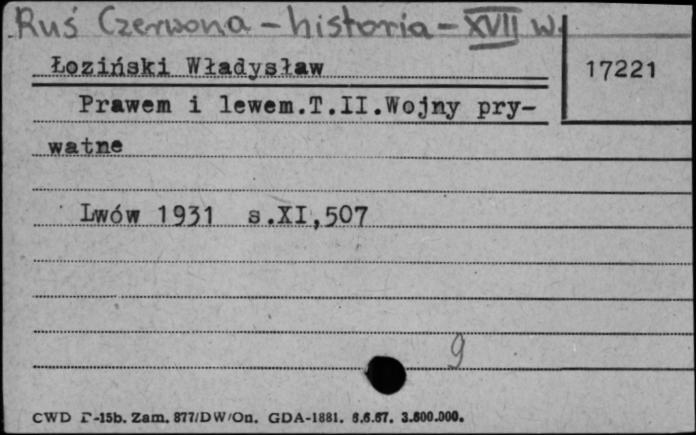 Ruś Czerwona - historia - XVII w.
Łoziński Władysław
17221
Prawem i lewem.T.II.Wojny pry-
watne
Lwów 1931 s.XI,507
9
CWD 15b. Zam. 877/DW/On. GDA-1881. 6.6.67. 3.600.000.